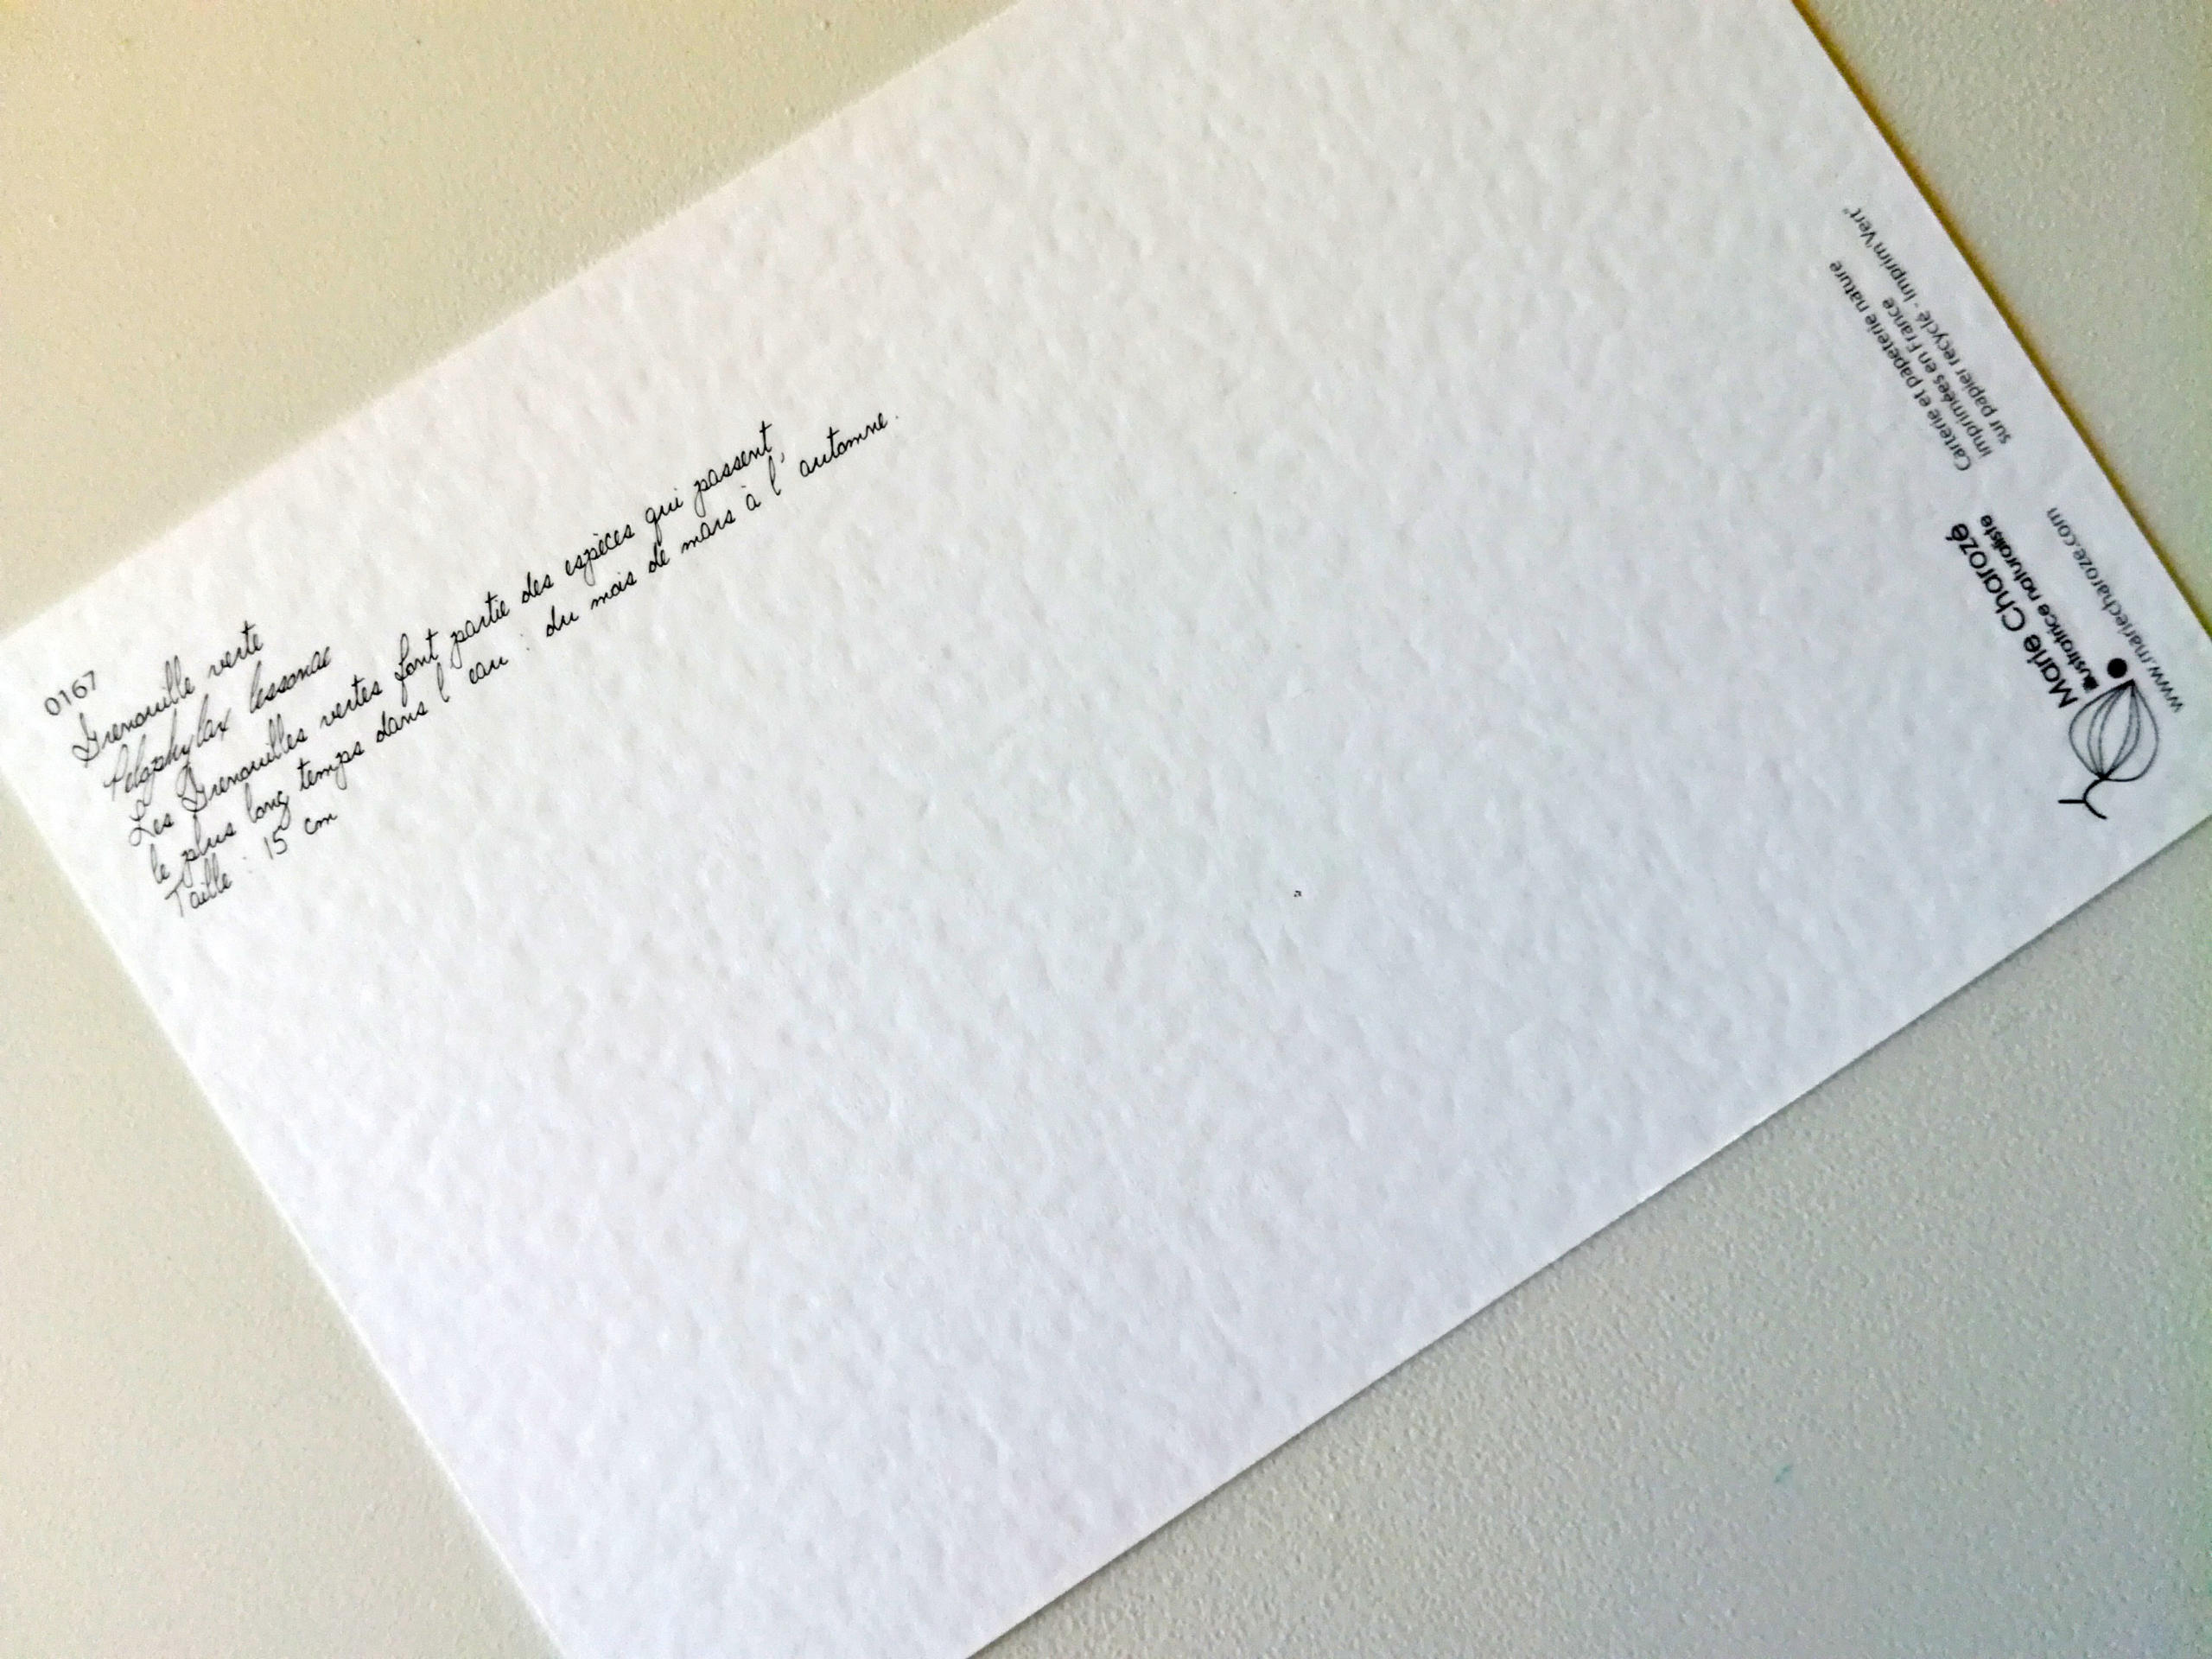 0167
Grenouille verte
Pelophylax lessonae
Les Grenouilles vertes font partie des espèces qui passent
le plus long temps dans l'eau : du mois de mars à l'automne.
Taille : 15 cm
Marie Charozé
illustratrice naturaliste
www.mariecharoze.com
Carterie et papeterie nature
imprimées en France
sur papier recyclé - Imprim'Vert®